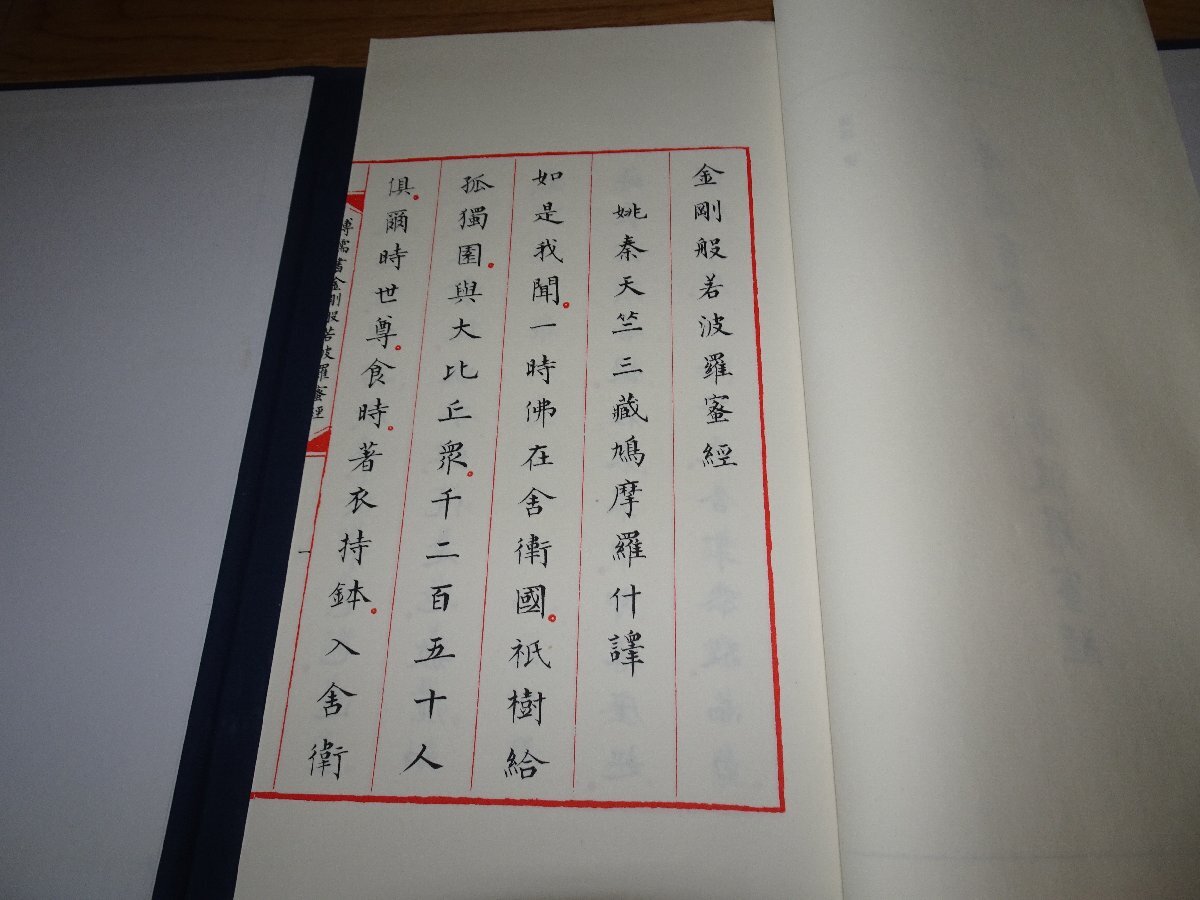 金剛般若波羅蜜經
姚秦天竺三藏鳩摩羅什譯
如是我聞。一時佛在舍衛國。祇樹給
孤獨園。與大比丘眾。千二百五十人
俱。爾時世尊。食時。著衣持鉢。入舍衛
溥儒書金剛般若波羅蜜經
一